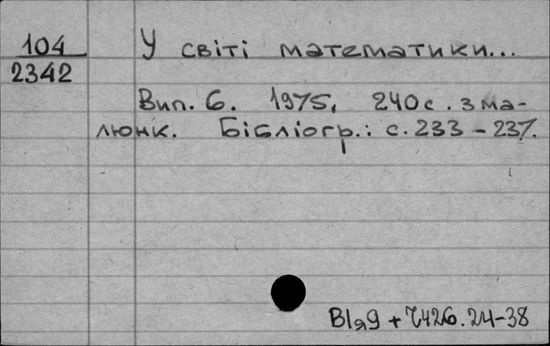 104
2342
У світі математики...
Вип. 6. 1975, 240с. з ма-
люнк. Бібліогр.: с. 233-237.
ВІя9 + Ч426.24-38